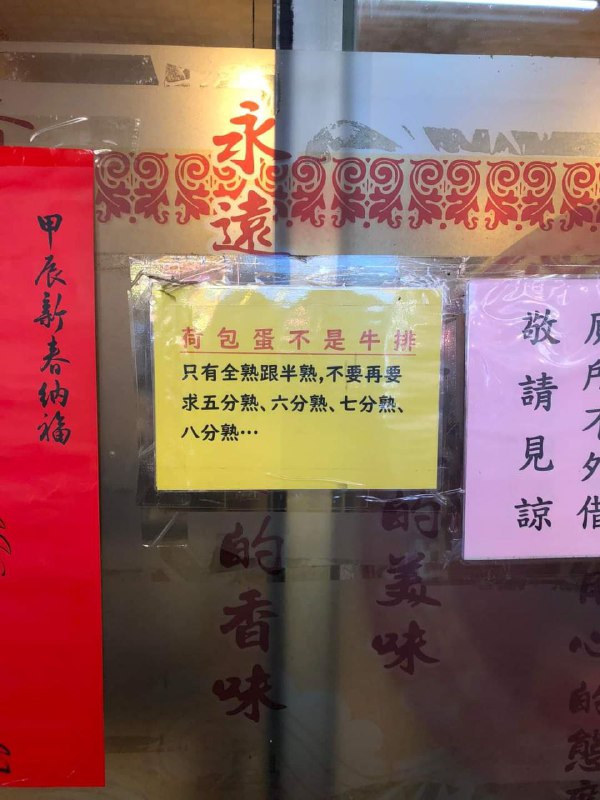 甲辰新春納福
永遠
的香味
的美味
心的態
荷包蛋不是牛排
只有全熟跟半熟,不要再要
求五分熟、六分熟、七分熟、
八分熟…
廁所不外借
敬請見諒